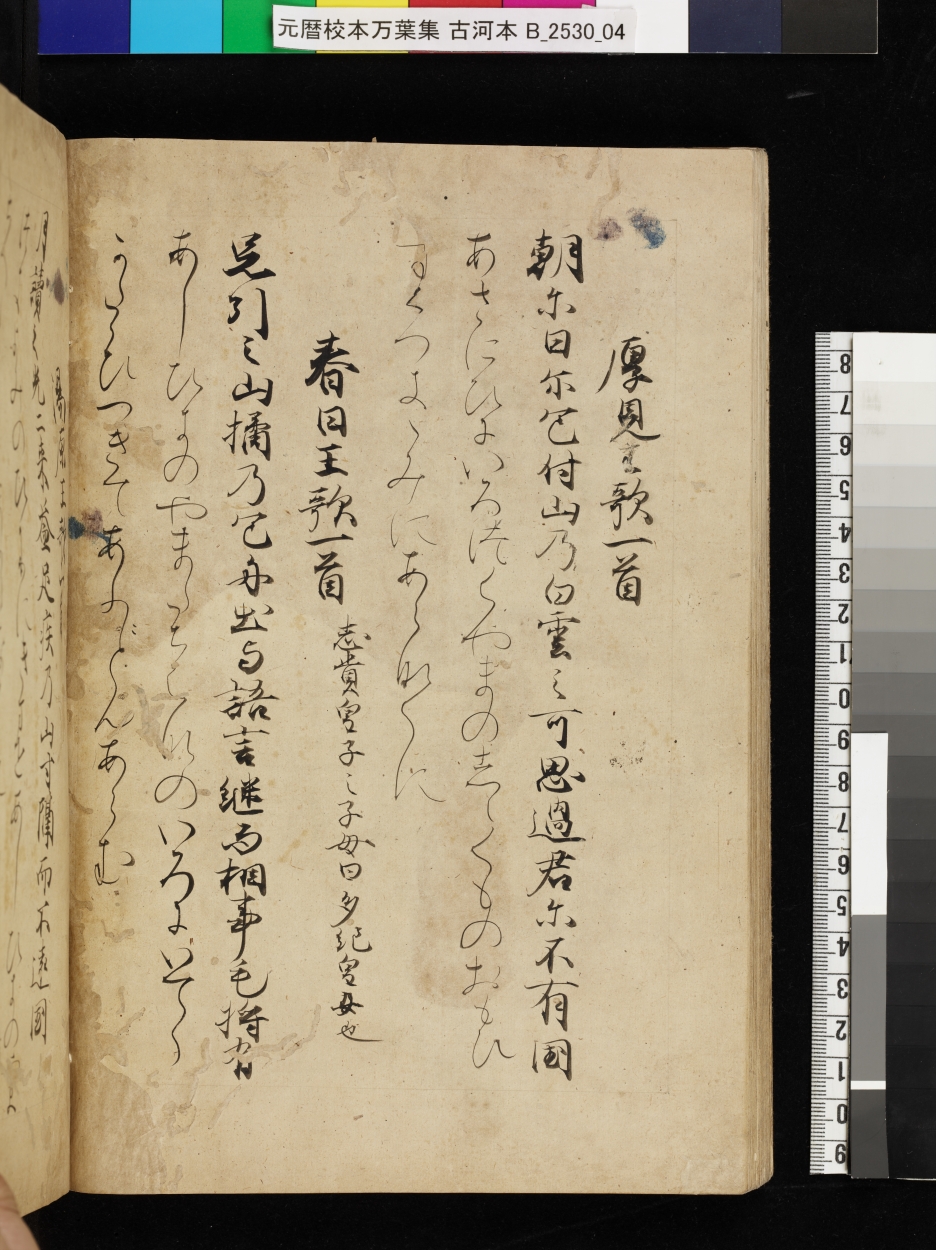 元暦校本万葉集 古河本 B_2530_04
厚見王歌一首
朝尓日尓色付山乃白雲之可思過君尓不有国
あさにひにいろつくやまのしらくものおもひ
すくへきゝみにあらなくに
春日王歌一首 志貴皇子之子母曰多紀皇女也
足引之山橘乃色丹出与語言継而相事毛将有
あしひきのやまたちはなのいろにいてゝ
かたらひつきてあふことあらむ
湯原王歌一首
月讀之光二来益足疾乃山寸隔而不遠国